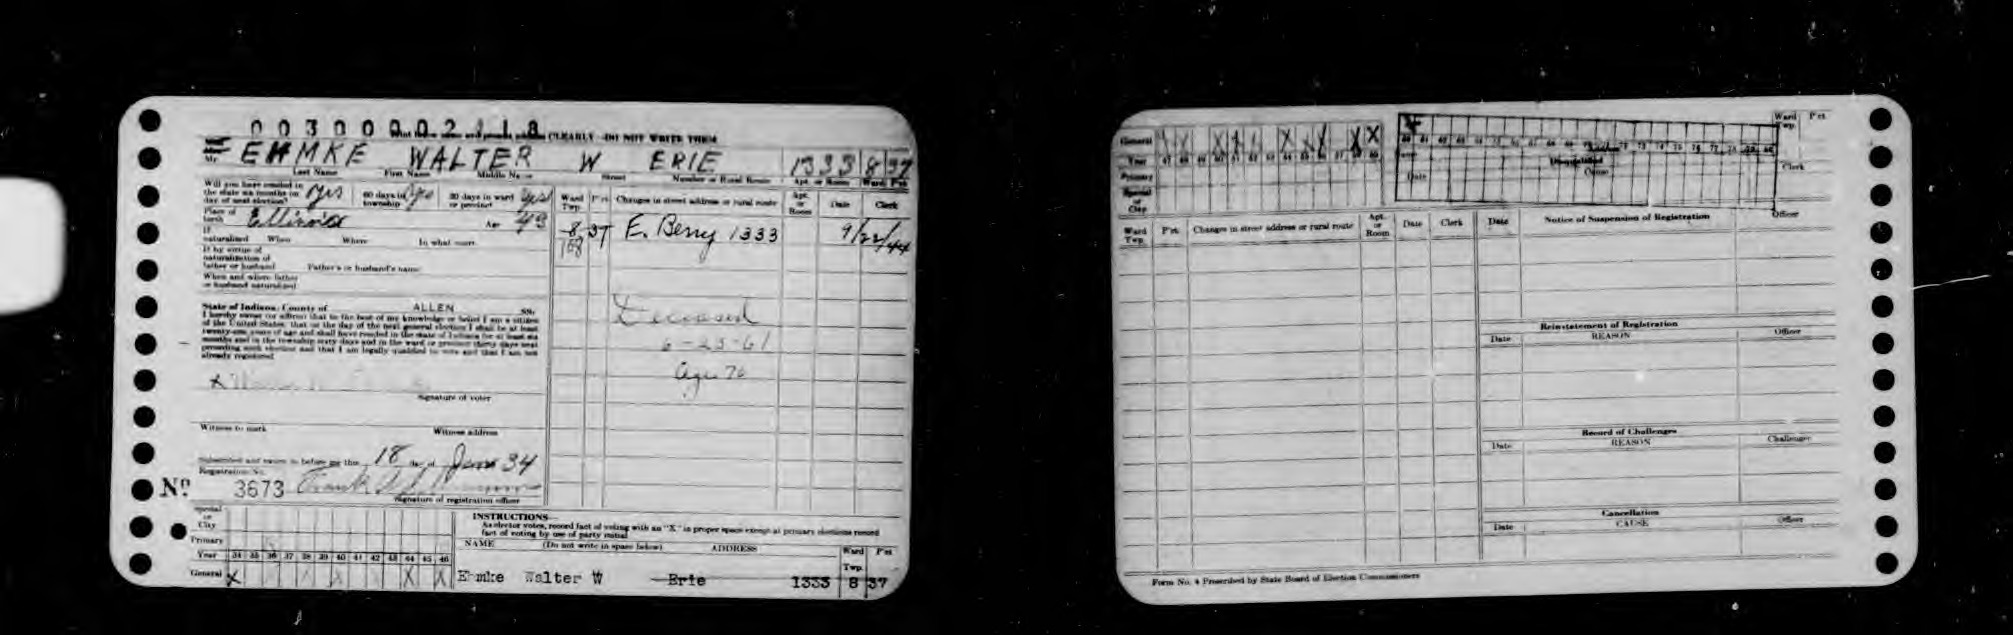 00300002118
CLEARLY—DO NOT WRITE THEM
Mr. EHMKE WALTER W ERIE 1333 8 37
Last Name First Name Middle Name Street Number or Rural Route Apt. or Room Ward Pct.
Will you have resided in the state six months on day of next election? yes 60 days in township yes 30 days in ward or precinct yes
Ward Twp. Pct. Changes in street address or rural route Apt. or Room Date Clerk
Place of birth Illinois Age 43
8 37 E. Berry 1333 9/22/44
If naturalized When Where In what court
If by virtue of naturalization of father or husband Father's or husband's name
When and where father or husband naturalized
State of Indiana, County of ALLEN SS.
I hereby swear (or affirm) that to the best of my knowledge or belief I am a citizen
of the United States, that on the day of the next general election I shall be at least
twenty-one years of age and shall have resided in the state of Indiana for at least six
months and in the township sixty days and in the ward or precinct thirty days next
preceding such election and that I am legally qualified to vote and that I am not
already registered.
Deceased
6-23-61
Age 70
x
Signature of voter
Witness to mark Witness address
Subscribed and sworn to before me this 18 day of June 34
Registration No.
No. 3673 Frank
Signature of registration officer
Special or City
Primary
Year 34 35 36 37 38 39 40 41 42 43 44 45 46
General X X X
INSTRUCTIONS—
As elector votes, record fact of voting with an "X" in proper space except at primary elections record
fact of voting by use of party initial
NAME (Do not write in space below) ADDRESS Ward Twp. Pct.
Ehmke Walter W Erie 1333 8 37
General
Year
Primary
Special or City
Ward Twp. Pct.
Clerk
Date
Cause
Ward Twp. Pct. Changes in street address or rural route Apt. or Room Date Clerk
Date Notice of Suspension of Registration Officer
Reinstatement of Registration
Date REASON Officer
Record of Challenges
Date REASON Challenger
Cancellation
Date CAUSE Officer
Form No. 4 Prescribed by State Board of Election Commissioners